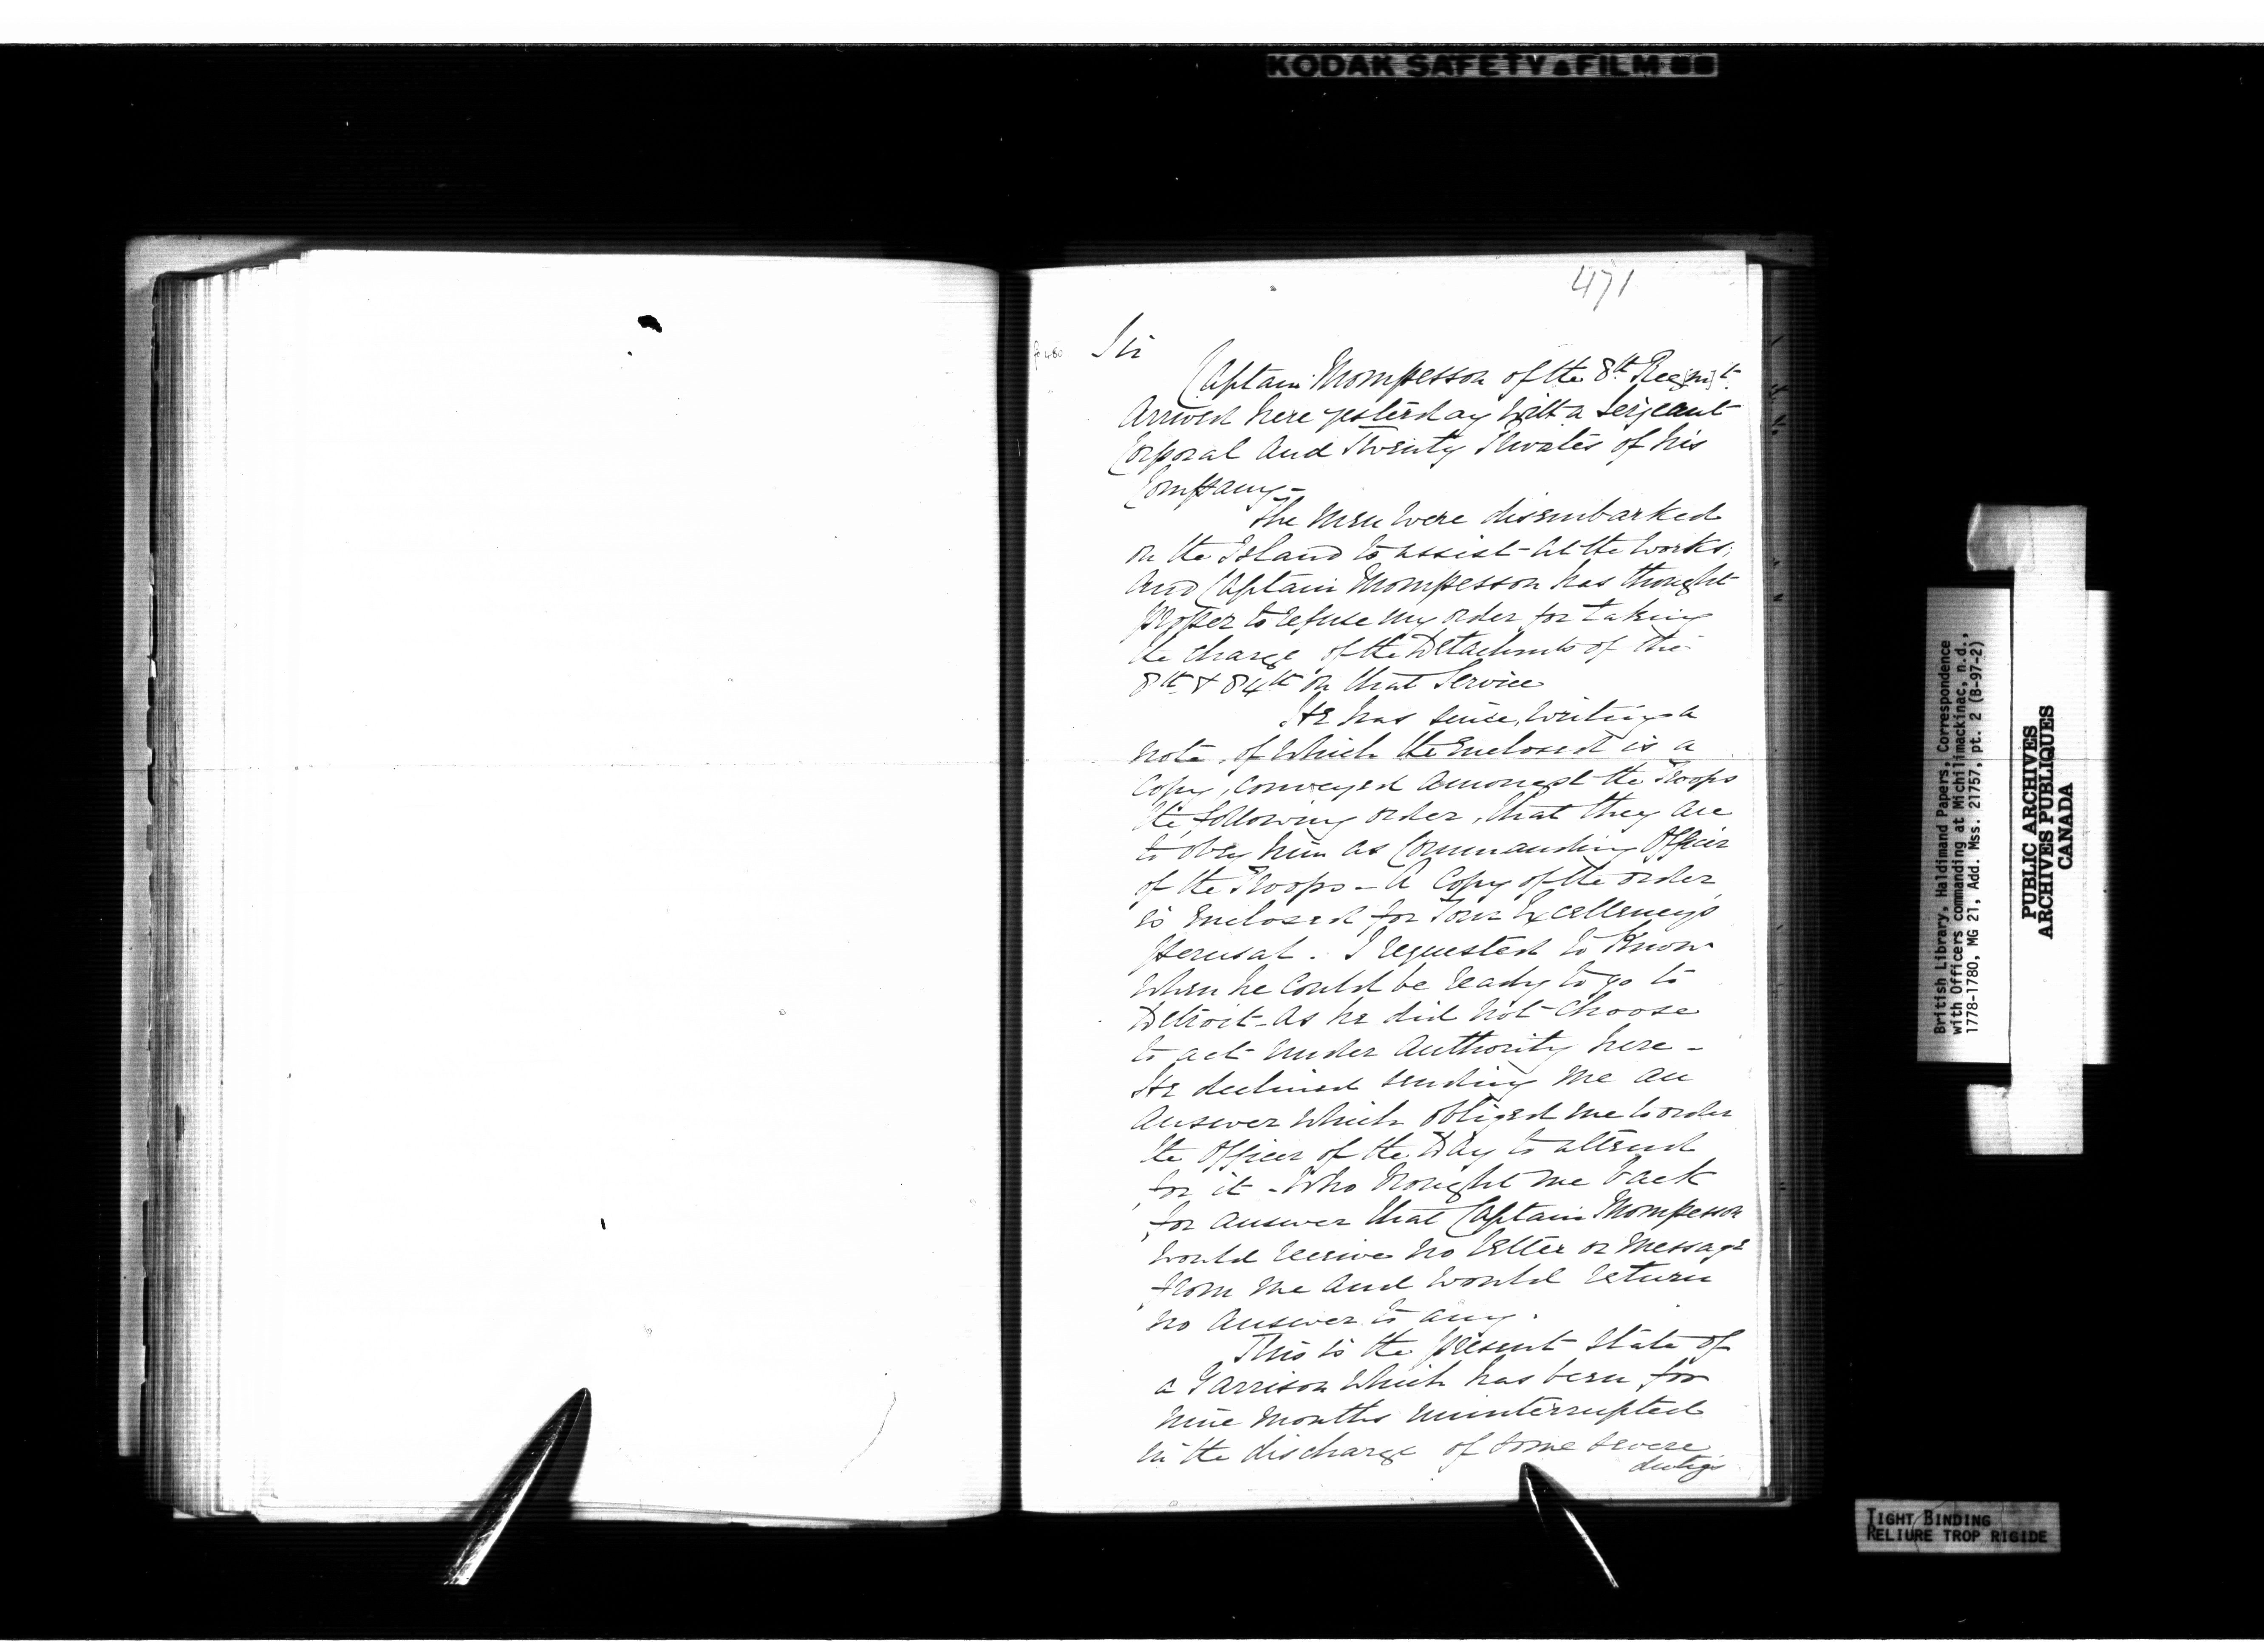 KODAK SAFETY FILM
471
Sir
Captain Mompesson of the 8th Reg[m]t
Arrived here yesterday with a Serjeant
Corporal and Twenty Privates of his
Company—
The Men were disembarked
on the Island to assist at the works;
and Captain Mompesson has thought
proper to refuse my order for taking
the charge of the Detachmts of the
8th & 84th on that Service
He has since, writing a
note, of which the Enclosed is a
Copy, Conveyed amongst the Troops
the following order, that they are
to obey him as Commanding Officer
of the Troops — A Copy of the order
is Enclosed for Your Excellency's
perusal. I requested to know
when he could be ready to go to
Detroit — As he did not choose
to act under Authority here —
He declined sending me an
Answer which obliged me to order
the Officer of the Day to attend
for it — Who brought me back
for answer that Captain Mompesson
would receive no letter or message
from me and would return
no answer to any.
This is the present State of
a Garrison which has been for
nine months uninterrupted
in the discharge of some severe
dutys
British Library, Haldimand Papers, Correspondence
with Officers commanding at Michilimackinac, n.d.,
1778-1780, MG 21, Add. Mss. 21757, pt. 2 (B-97-2)
PUBLIC ARCHIVES
ARCHIVES PUBLIQUES
CANADA
TIGHT BINDING
RELIURE TROP RIGIDE